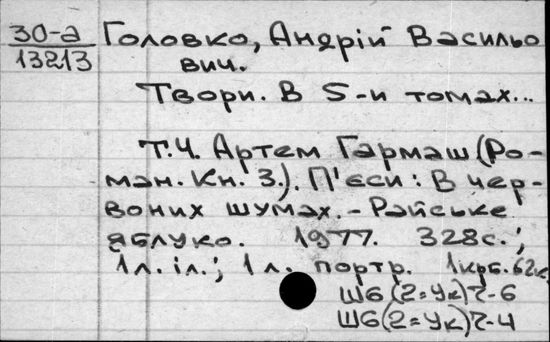 30-а
13213
Головко, Андрій Васильо
вич.
Твори. В 5-и томах...
Т.4. Артем Гармаш (Ро-
ман. Кн. 3.). П'єси: В чер-
воних шумах. - Райське
яблуко. 1977. 328с.;
1л. іл.; 1л. портр. 1крб. 62к.
Ш6(2=Ук)7-6
Ш6(2=Ук)7-4